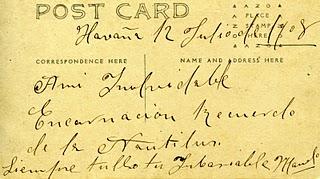 POST CARD
AZO
PLACE
STAMP
HERE
AZO
Havana 12 Julio de 1908
CORRESPONDENCE HERE
NAME AND ADDRESS HERE
A mi Inolvidable
Encarnación Recuerdo
de la Nautilus.
Siempre tullo tu Manolo